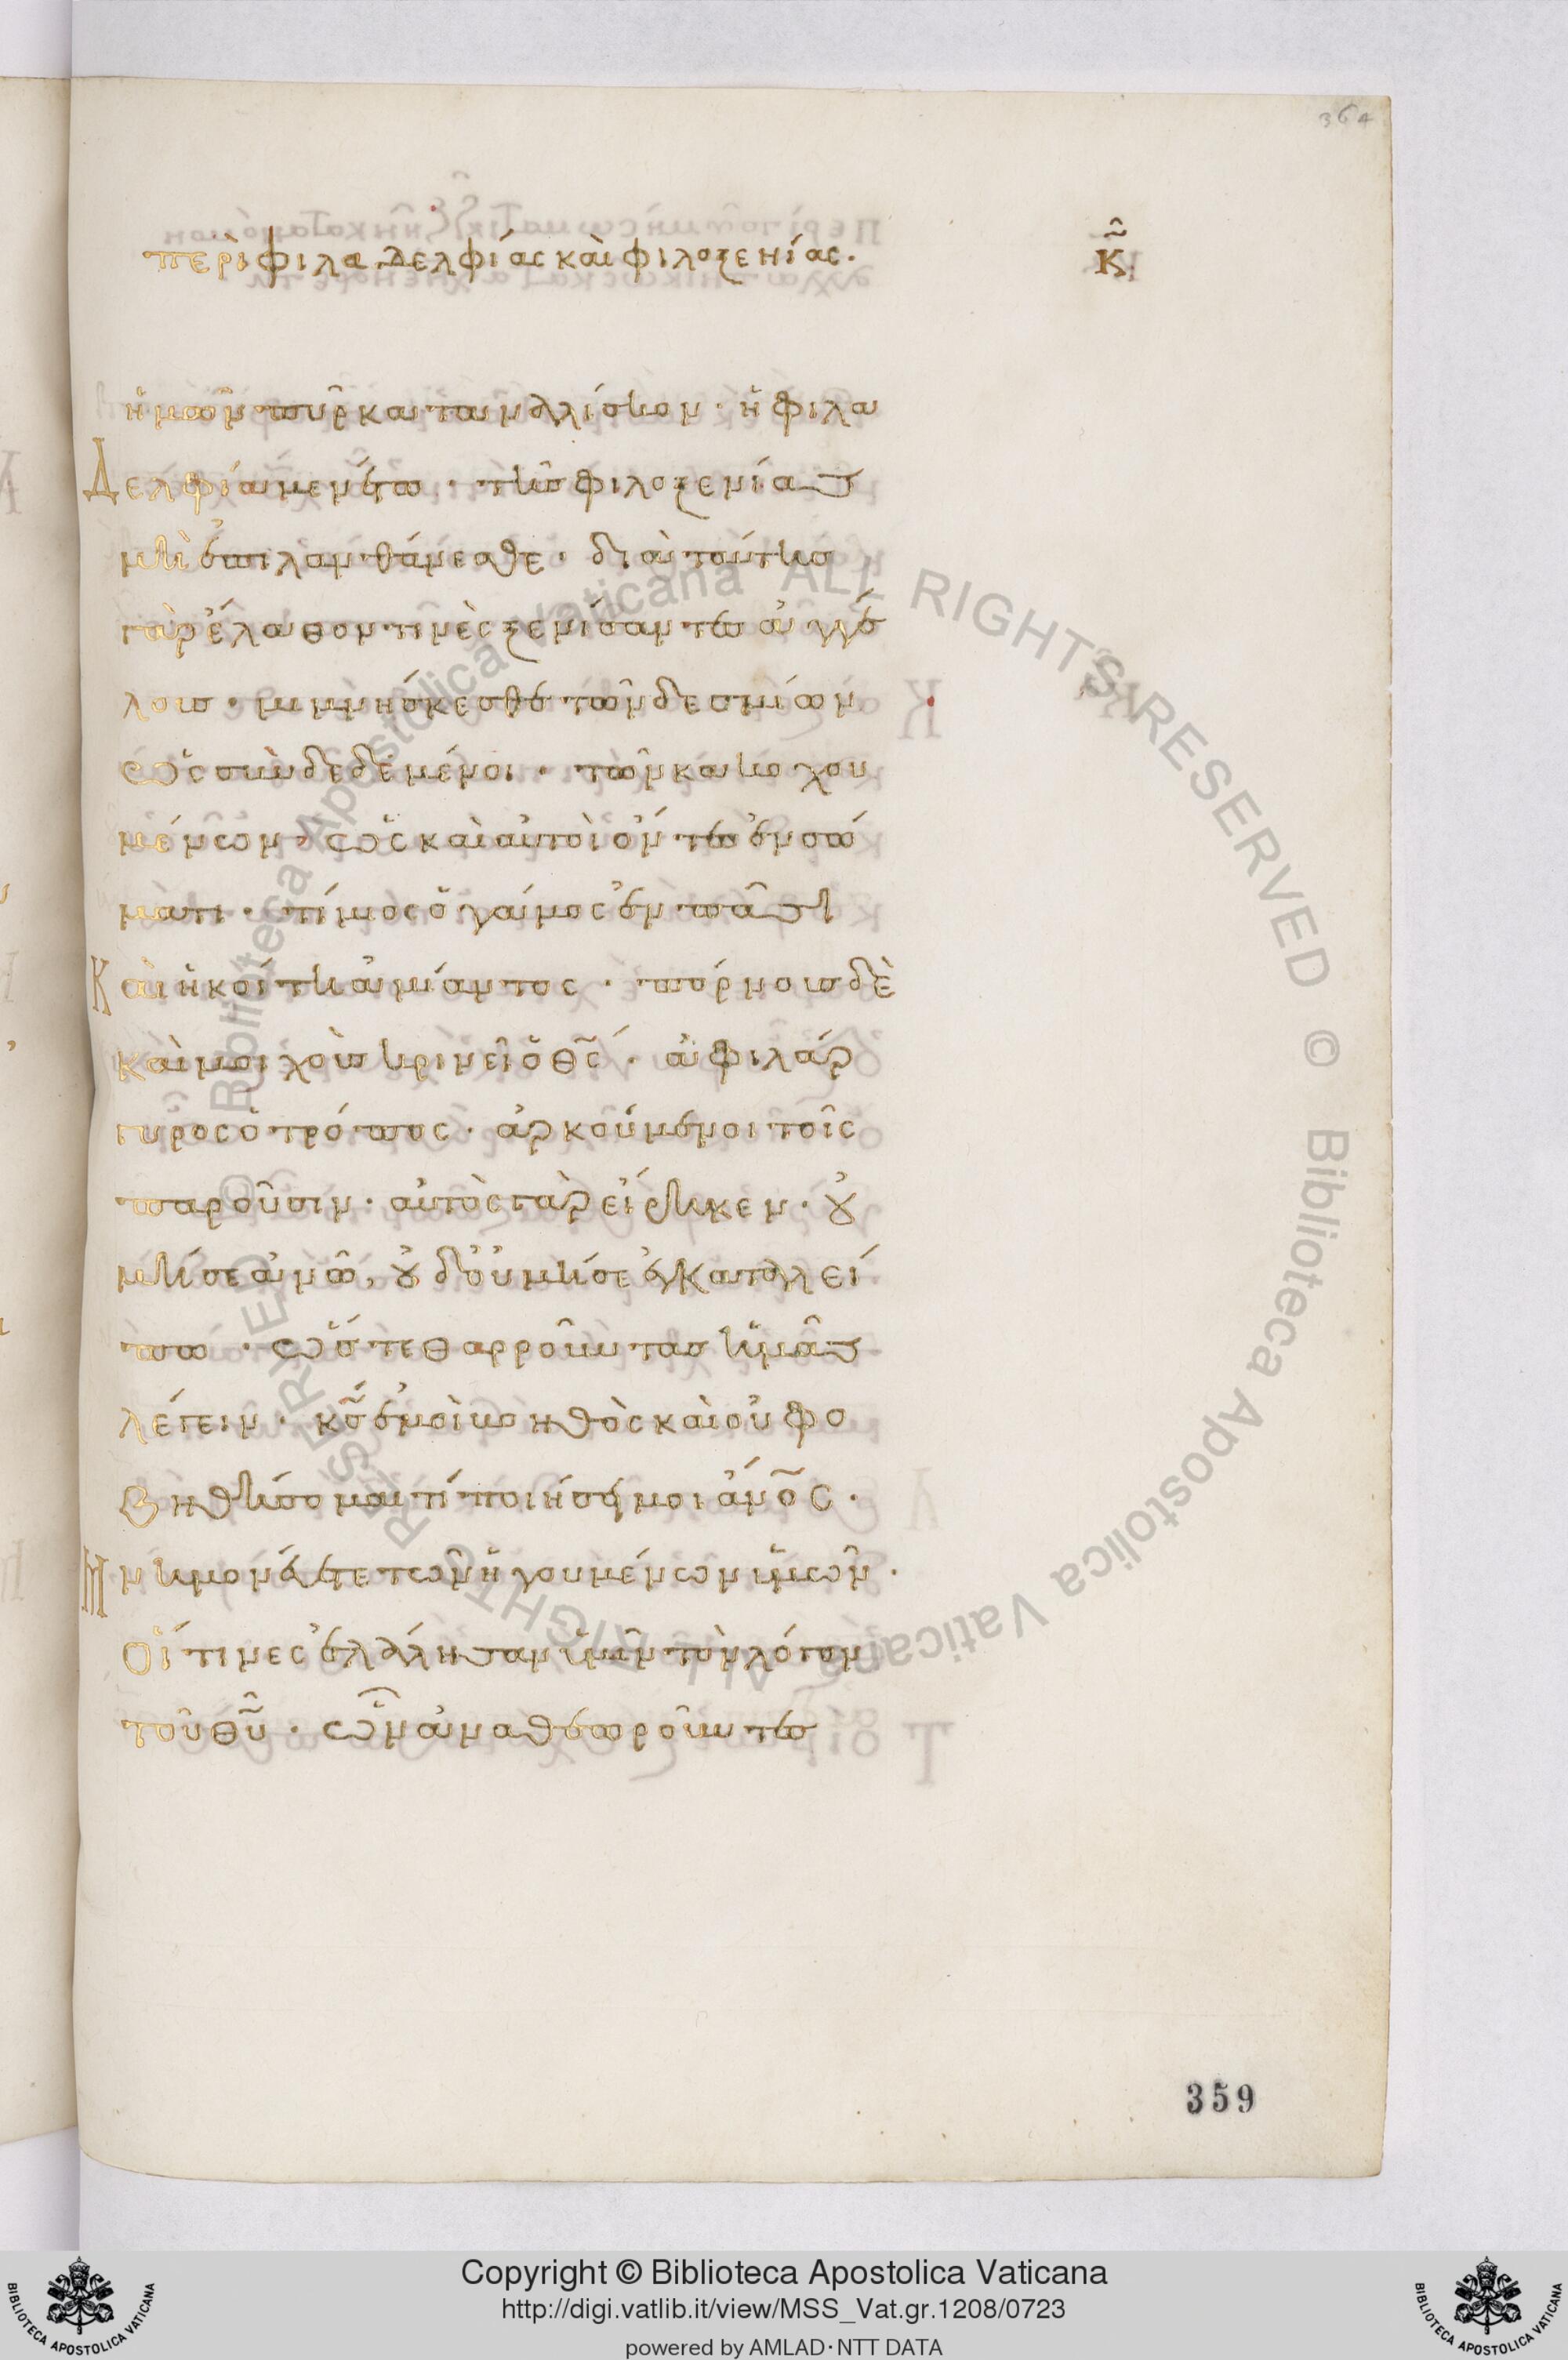 364
περὶ φιλαδελφίας καὶ φιλοξενίας. κ̑
ἡμῶν πῦρ καταναλίσκον · ἡ φιλα
Δελφία μενέτω · τῆς φιλοξενίας
μὴ ἐπιλανθάνεσθε · διὰ ταύτης
γὰρ ἔλαθον τινὲς ξενίσαντες ἀγγέ
λους · μιμνήσκεσθε τῶν δεσμίων
ὡς συνδεδεμένοι · τῶν κακουχου
μένων, ὡς καὶ αὐτοὶ ὄντες ἐν σώ
ματι · τίμιος ὁ γάμος ἐν πᾶσι
Καὶ ἡ κοίτη ἀμίαντος · πόρνους δὲ
καὶ μοιχοὺς κρινεῖ ὁ θς̅ · ἀφιλάρ
γυρος ὁ τρόπος · ἀρκούμενοι τοῖς
παροῦσιν · αὐτὸς γὰρ εἴρηκεν · οὐ
μή σε ἀνῶ, οὐδ' οὐ μή σε ἐγκαταλεί
πω · ὥστε θαρροῦντας ἡμᾶς
λέγειν · κς̅ ἐμοὶ βοηθὸς καὶ οὐ φο
βηθήσομαι τί ποιήσῃ μοι ἄνος̅ ·
Μνημονεύετε τῶν ἡγουμένων ὑμῶν ·
Οἵτινες ἐλάλησαν ὑμῖν τὸν λόγον
τοῦ θυ̅ · ὧν ἀναθεωροῦντες
359
© Biblioteca Apostolica Vaticana ALL RIGHTS RESERVED © Biblioteca Apostolica Vaticana ALL RIGHTS RESERVED
Copyright © Biblioteca Apostolica Vaticana
http://digi.vatlib.it/view/MSS_Vat.gr.1208/0723
powered by AMLAD·NTT DATA
BIBLIOTECA APOSTOLICA VATICANA
BIBLIOTECA APOSTOLICA VATICANA